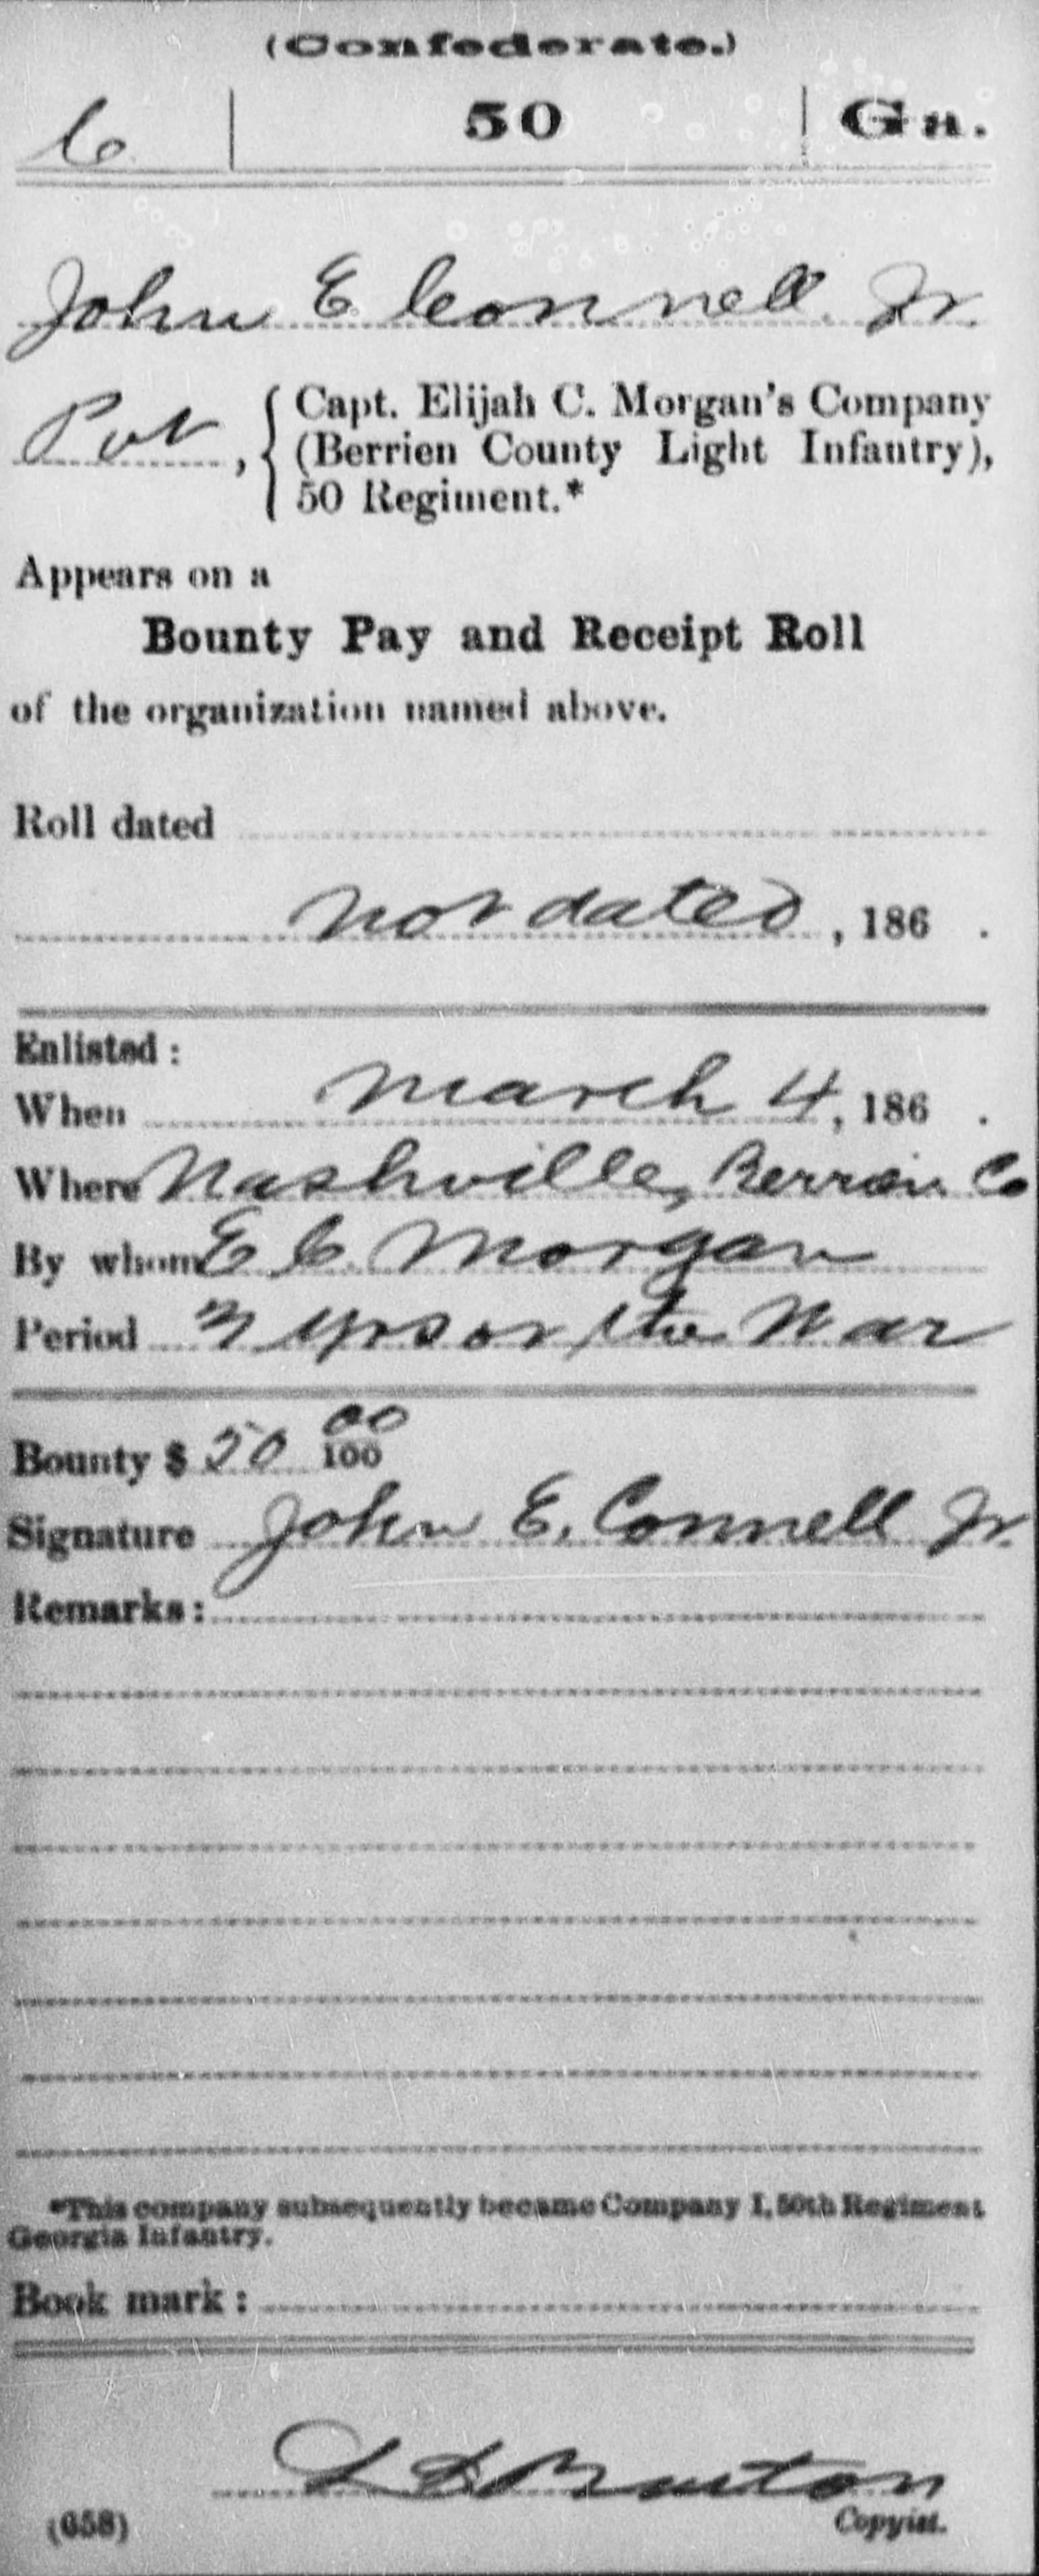 (Confederate.)
C | 50 | Ga.
John E Connell Jr.
Pvt, { Capt. Elijah C. Morgan's Company
(Berrien County Light Infantry),
50 Regiment.*
Appears on a
Bounty Pay and Receipt Roll
of the organization named above.
Roll dated
not dated, 186 .
Enlisted:
When March 4, 186 .
Where Nashville, Berrien Co
By whom E C. Morgan
Period 3 yrs or the War
Bounty $ 50 00/100
Signature John E. Connell Jr.
Remarks:
*This company subsequently became Company I, 50th Regiment
Georgia Infantry.
Book mark:
Copyist.
(658)